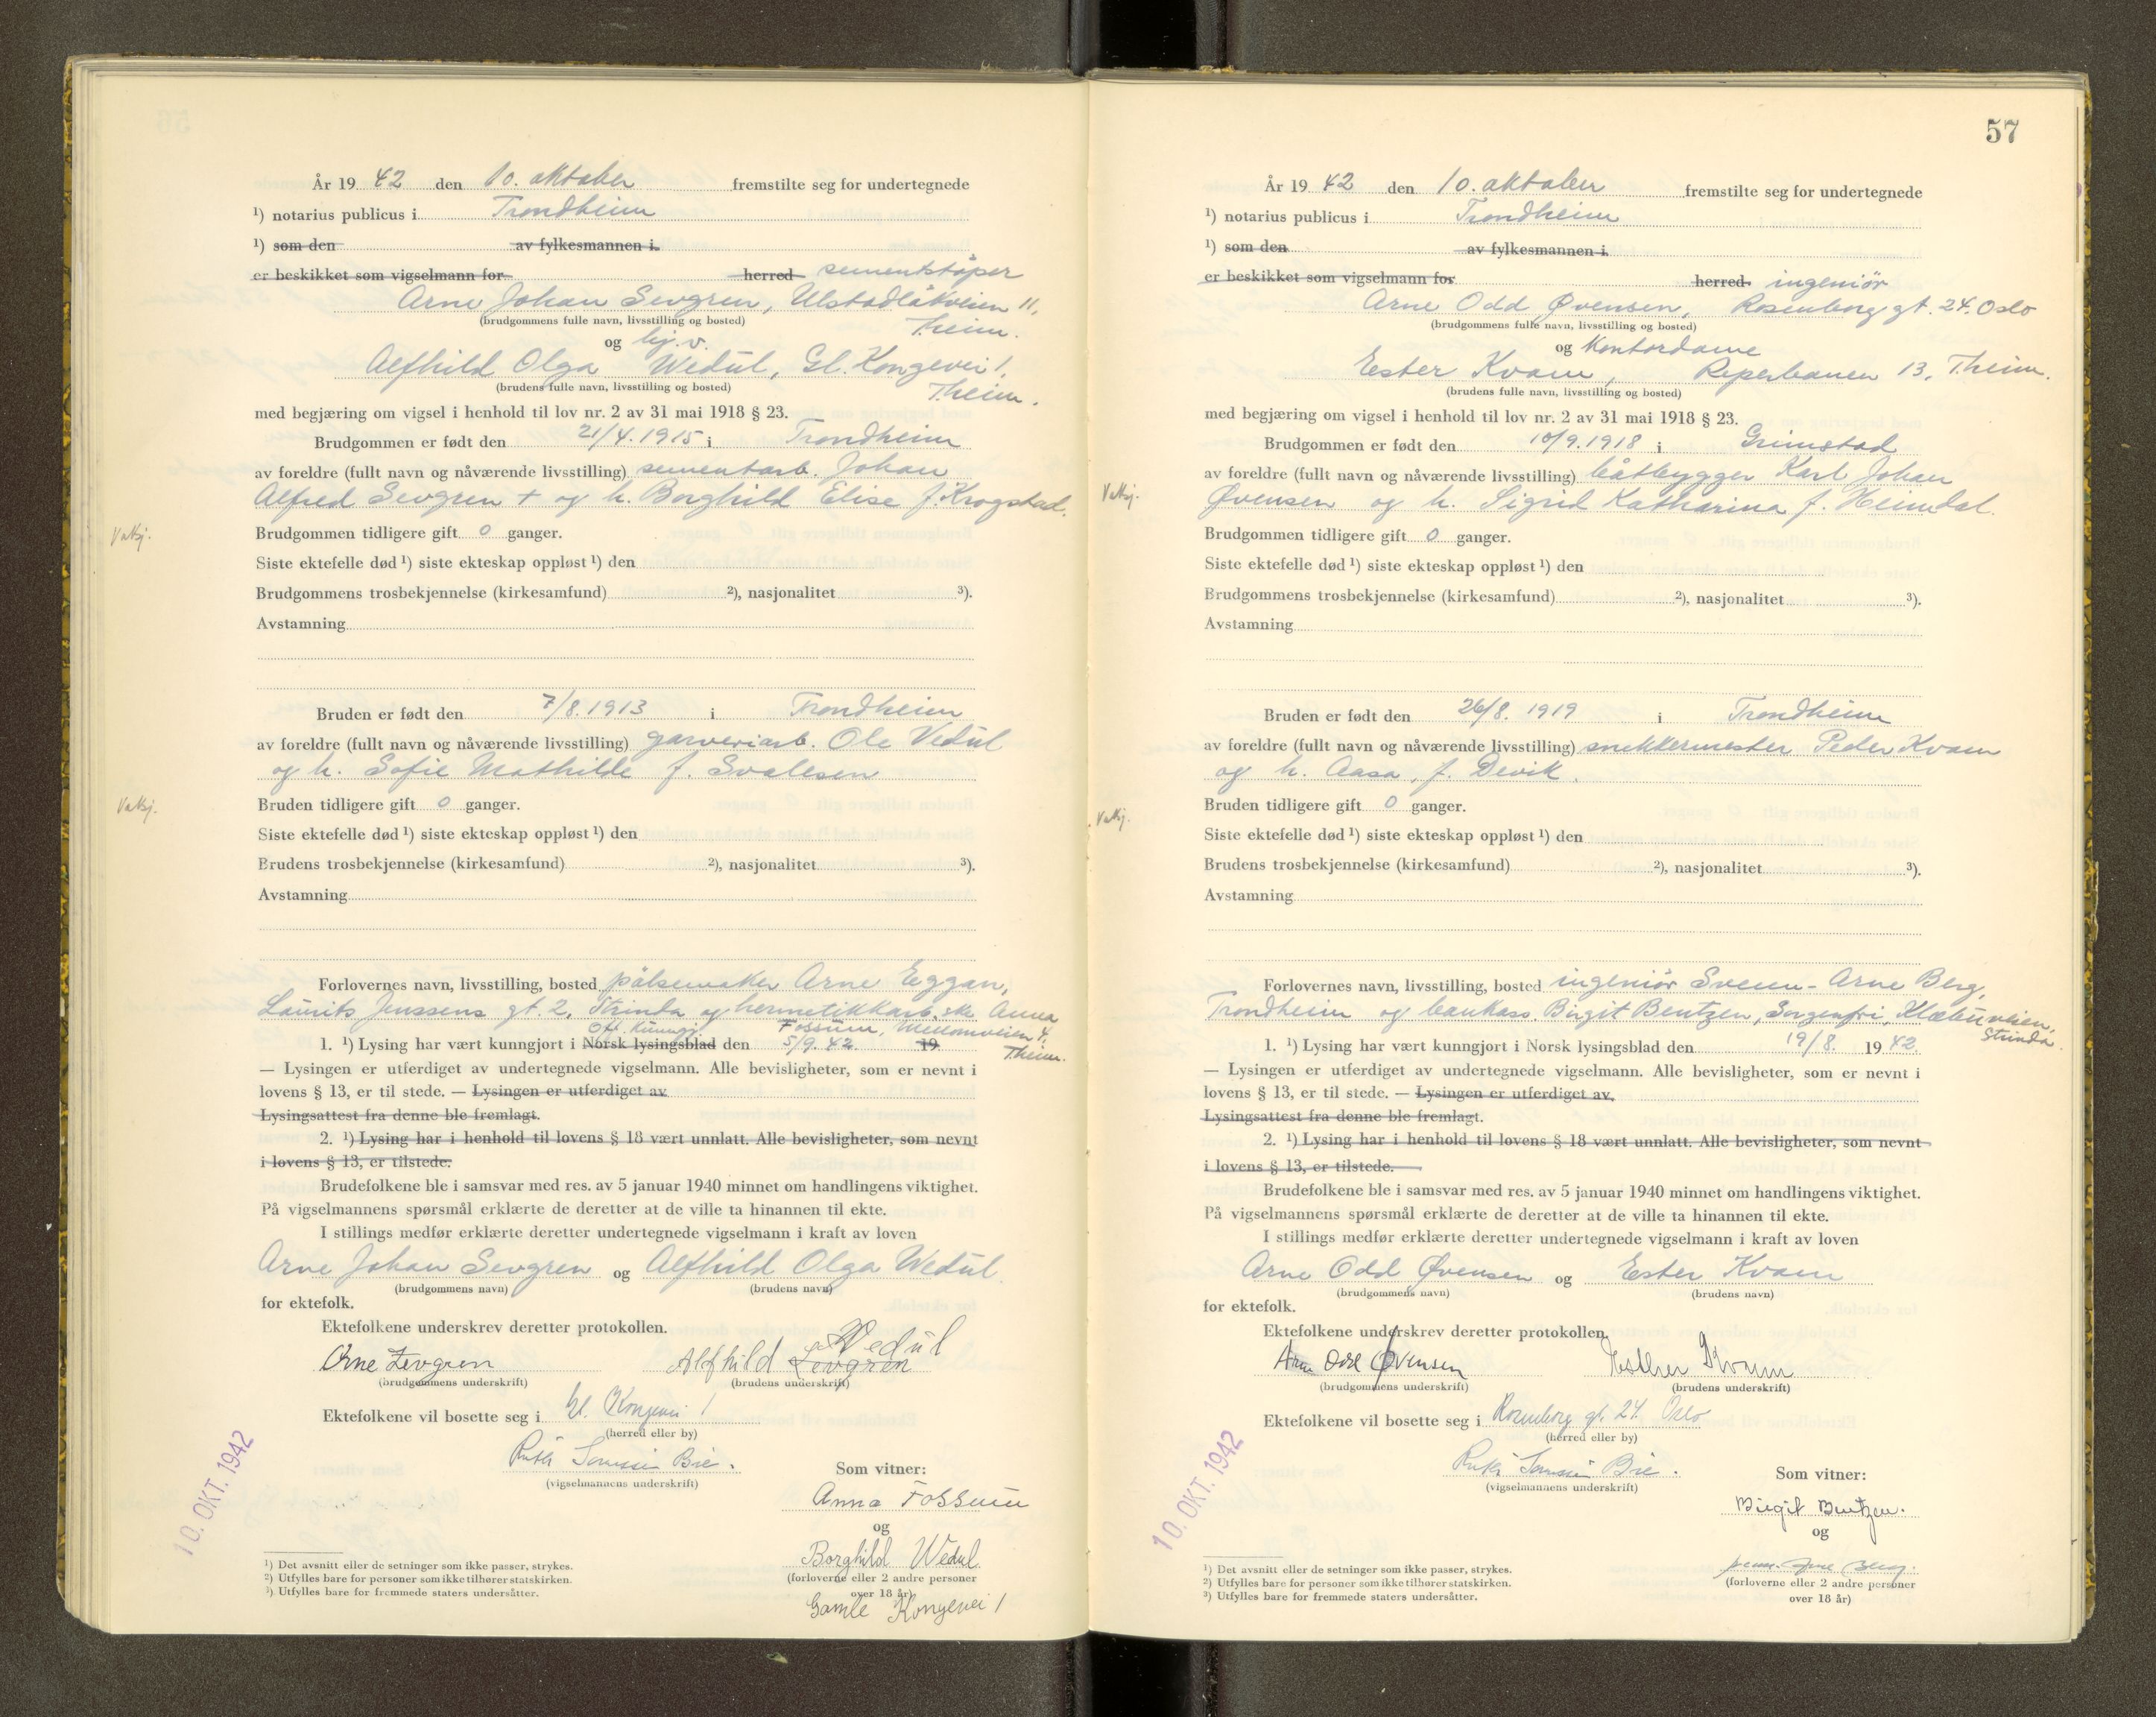 År 19 42 den 10. oktober fremstilte seg for undertegnede
¹) notarius publicus i Trondheim
¹) som den av fylkesmannen i
er beskikket som vigselmann for herred sementstøper
Arne Johan Sevgren, Ulstadløkveien 11,
(brudgommens fulle navn, livsstilling og bosted) Theim.
og hj. v.
Alfhild Olga Wedul, Gl. Kongevei 1,
(brudens fulle navn, livsstilling og bosted) Theim.
med begjæring om vigsel i henhold til lov nr. 2 av 31 mai 1918 § 23.
Brudgommen er født den 21/4.1915 i Trondheim
av foreldre (fullt navn og nåværende livsstilling) sementarb. Johan
Alfred Sevgren + og h. Borghild Elise f. Krogstad.
Brudgommen tidligere gift 0 ganger.
Siste ektefelle død ¹) siste ekteskap oppløst ¹) den
Brudgommens trosbekjennelse (kirkesamfund) ²), nasjonalitet ³).
Avstamning
Bruden er født den 7/8.1913 i Trondheim
av foreldre (fullt navn og nåværende livsstilling) garveriarb. Ole Vedul
og h. Sofie Mathilde f. Svalesen
Bruden tidligere gift 0 ganger.
Siste ektefelle død ¹) siste ekteskap oppløst ¹) den
Brudens trosbekjennelse (kirkesamfund) ²), nasjonalitet ³).
Avstamning
Forlovernes navn, livsstilling, bosted pølsemaker Arne Eggan,
Laurits Jenssens gt. 2, Strinda og hermetikkarb.ske Anna
Off. Kunngj. Fossum, Mellomveien 4,
1. ¹) Lysing har vært kunngjort i Norsk lysingsblad den 5/9.42. 19 Theim.
— Lysingen er utferdiget av undertegnede vigselmann. Alle bevisligheter, som er nevnt i
lovens § 13, er til stede. — Lysingen er utferdiget av
Lysingsattest fra denne ble fremlagt.
2. ¹) Lysing har i henhold til lovens § 18 vært unnlatt. Alle bevisligheter, som nevnt
i lovens § 13, er tilstede.
Brudefolkene ble i samsvar med res. av 5 januar 1940 minnet om handlingens viktighet.
På vigselmannens spørsmål erklærte de deretter at de ville ta hinannen til ekte.
I stillings medfør erklærte deretter undertegnede vigselmann i kraft av loven
Arne Johan Sevgren og Alfhild Olga Wedul.
(brudgommens navn) (brudens navn)
for ektefolk.
Ektefolkene underskrev deretter protokollen.
Wedul
Arne Zevgren Alfhild Zevgren
(brudgommens underskrift) (brudens underskrift)
Ektefolkene vil bosette seg i Gl. Kongevei 1
(herred eller by)
Bie.
(vigselmannens underskrift)
Som vitner:
Anna Fossum
og
Borghild Wedul.
(forloverne eller 2 andre personer
over 18 år)
Gamle Kongevei 1
10. OKT. 1942
¹) Det avsnitt eller de setninger som ikke passer, strykes.
²) Utfylles bare for personer som ikke tilhører statskirken.
³) Utfylles bare for fremmede staters undersåtter.
57
År 19 42 den 10. oktober fremstilte seg for undertegnede
¹) notarius publicus i Trondheim
¹) som den av fylkesmannen i
er beskikket som vigselmann for herred ingeniør
Arne Odd Øvensen, Rosenborg gt. 24. Oslo
(brudgommens fulle navn, livsstilling og bosted)
og Kontordame
Ester Kvam, Reperbanen 13, Theim.
(brudens fulle navn, livsstilling og bosted)
med begjæring om vigsel i henhold til lov nr. 2 av 31 mai 1918 § 23.
Brudgommen er født den 10/9.1918 i Grimstad
av foreldre (fullt navn og nåværende livsstilling) båtbygger Karl Johan
Øvensen og h. Sigrid Katharina f. Heimdal.
Brudgommen tidligere gift 0 ganger.
Siste ektefelle død ¹) siste ekteskap oppløst ¹) den
Brudgommens trosbekjennelse (kirkesamfund) ²), nasjonalitet ³).
Avstamning
Bruden er født den 26/8. 1919 i Trondheim
av foreldre (fullt navn og nåværende livsstilling) snekkermester Peder Kvam
og h. Aasa, f. Devik.
Bruden tidligere gift 0 ganger.
Siste ektefelle død ¹) siste ekteskap oppløst ¹) den
Brudens trosbekjennelse (kirkesamfund) ²), nasjonalitet ³).
Avstamning
Forlovernes navn, livsstilling, bosted ingeniør Svenn-Arne Berg,
Trondheim og bankass. Birgit Bentzen, Sorgenfri, Klæbuveien,
Strinda.
1. ¹) Lysing har vært kunngjort i Norsk lysingsblad den 19/8. 19 42.
— Lysingen er utferdiget av undertegnede vigselmann. Alle bevisligheter, som er nevnt i
lovens § 13, er til stede. — Lysingen er utferdiget av
Lysingsattest fra denne ble fremlagt.
2. ¹) Lysing har i henhold til lovens § 18 vært unnlatt. Alle bevisligheter, som nevnt
i lovens § 13, er tilstede.
Brudefolkene ble i samsvar med res. av 5 januar 1940 minnet om handlingens viktighet.
På vigselmannens spørsmål erklærte de deretter at de ville ta hinannen til ekte.
I stillings medfør erklærte deretter undertegnede vigselmann i kraft av loven
Arne Odd Øvensen og Ester Kvam
(brudgommens navn) (brudens navn)
for ektefolk.
Ektefolkene underskrev deretter protokollen.
Arne Odd Øvensen Esther Kvam
(brudgommens underskrift) (brudens underskrift)
Ektefolkene vil bosette seg i Rosenborg gt. 24. Oslo
(herred eller by)
Bie.
(vigselmannens underskrift)
Som vitner:
Birgit Bentzen.
og
Svenn-Arne Berg.
(forloverne eller 2 andre personer
over 18 år)
10. OKT. 1942
¹) Det avsnitt eller de setninger som ikke passer, strykes.
²) Utfylles bare for personer som ikke tilhører statskirken.
³) Utfylles bare for fremmede staters undersåtter.